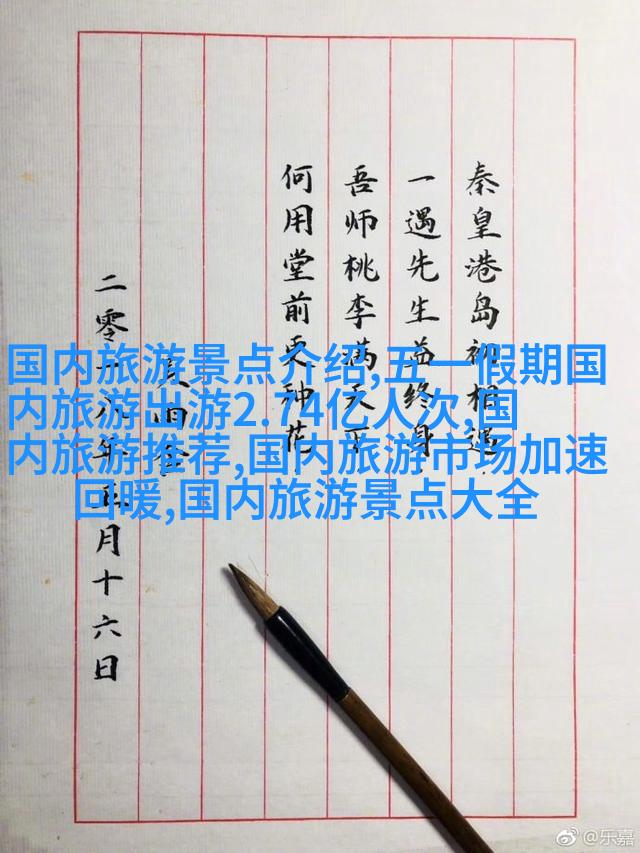 秦皇港岛初相遇
一遇先生益终身
吾师桃李满天下
何用堂前更种花
二零一八年五月十六日
国内旅游景点介绍,五一假期国
内旅游出游2.74亿人次,国
内旅游推荐,国内旅游市场加速
回暖,国内旅游景点大全
@乐嘉